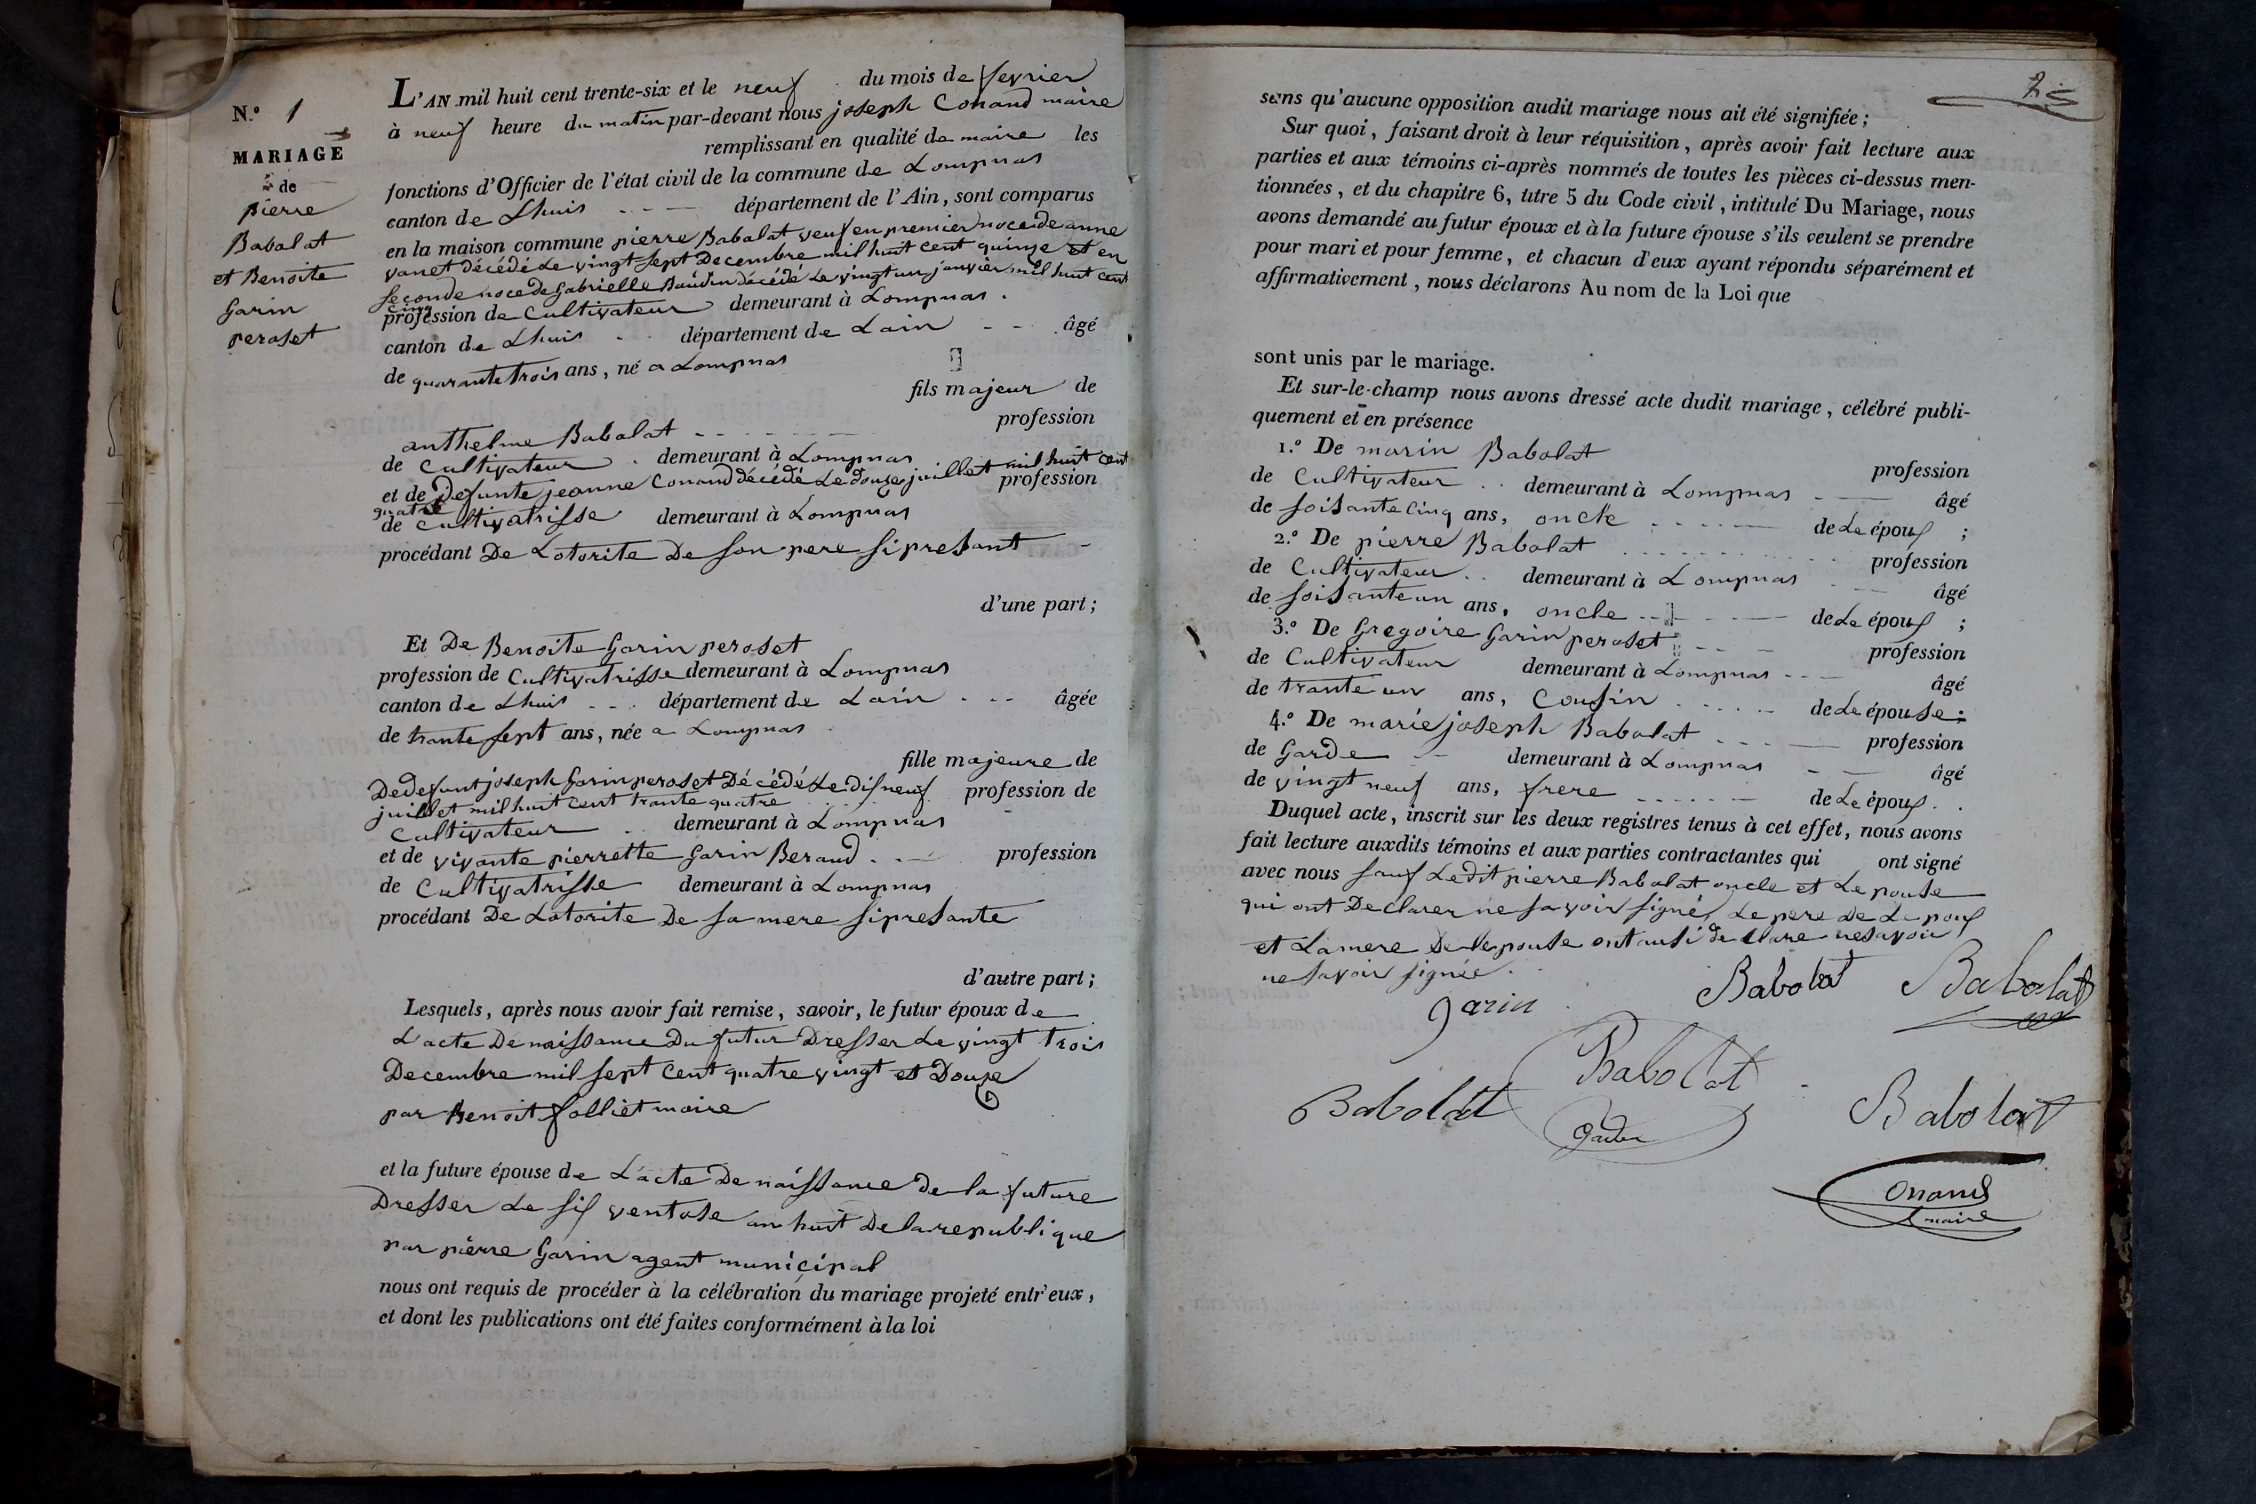 N.º 1
MARIAGE
de
pierre
Babolat
et Benoite
Garin
peroset
L'AN mil huit cent trente-six et le neuf du mois de fevrier
à neuf heure du matin par-devant nous joseph Conand maire
remplissant en qualité de maire les
fonctions d'Officier de l'état civil de la commune de Lompnas
canton de Lhuis département de l'Ain, sont comparus
en la maison commune pierre Babolat veuf en premier noce de anne
vanet décédé Le vingt sept Decembre mil huit cent quinze et en
seconde noce de Gabrielle Baudin décédé Le vingt un janvier mil huit cent
cinq
profession de Cultivateur demeurant à Lompnas.
canton de Lhuis département de Lain âgé
de quarante trois ans, né a Lompnas
fils majeur de
anthelme Babolat profession
de Cultivateur demeurant à Lompnas
et de Defunte jeanne Conand décédé Le douze juillet mil huit cent
quatre profession
de Cultivatrisse demeurant à Lompnas
procédant De Lotorite De son pere si presant
d'une part;
Et De Benoite Garin peroset
profession de Cultivatrisse demeurant à Lompnas
canton de Lhuis département de Lain âgée
de trante sept ans, née a Lompnas
fille majeure de
De defunt joseph Garin peroset Décédé Le disneuf profession de
juillet mil huit cent trante quatre
Cultivateur demeurant à Lompnas
et de vivante pierrette Garin Beraud profession
de Cultivatrisse demeurant à Lompnas
procédant De Lotorite De sa mere si presante
d'autre part;
Lesquels, après nous avoir fait remise, savoir, le futur époux de
L'acte De naissance Du futur Dresser Le vingt trois
Decembre mil sept Cent quatre vingt et Douze
par Benoit folliet maire
et la future épouse de L'acte De naissance de la future
Dresser Le sis ventose an huit De la republique
par pierre Garin agent municipal
nous ont requis de procéder à la célébration du mariage projeté entr'eux,
et dont les publications ont été faites conformément à la loi
sans qu'aucune opposition audit mariage nous ait été signifiée;
Sur quoi, faisant droit à leur réquisition, après avoir fait lecture aux
parties et aux témoins ci-après nommés de toutes les pièces ci-dessus men-
tionnées, et du chapitre 6, titre 5 du Code civil, intitulé Du Mariage, nous
avons demandé au futur époux et à la future épouse s'ils veulent se prendre
pour mari et pour femme, et chacun d'eux ayant répondu séparément et
affirmativement, nous déclarons Au nom de la Loi que
sont unis par le mariage.
Et sur-le-champ nous avons dressé acte dudit mariage, célébré publi-
quement et en présence
1.º De marin Babolat profession
de Cultivateur demeurant à Lompnas âgé
de soisante cinq ans, oncle de Le épous;
2.º De pierre Babolat profession
de Cultivateur demeurant à Lompnas âgé
de soisante un ans, oncle de Le épous;
3.º De Gregoire Garin peroset profession
de Cultivateur demeurant à Lompnas âgé
de trante un ans, Cousin de Le épouse;
4.º De marie joseph Babolat profession
de Garde demeurant à Lompnas âgé
de vingt neuf ans, frere de Le épous.
Duquel acte, inscrit sur les deux registres tenus à cet effet, nous avons
fait lecture auxdits témoins et aux parties contractantes qui ont signé
avec nous sauf Ledit pierre Babolat oncle et Le pouse
qui ont Declarer ne savoir signé, Le pere De Le pous
et La mere De le pouse ont ausi declare ne savoir
ne savoir signée.
garin Babolat Babolat
Babolat Babolat Babolat
garde
Conand
maire